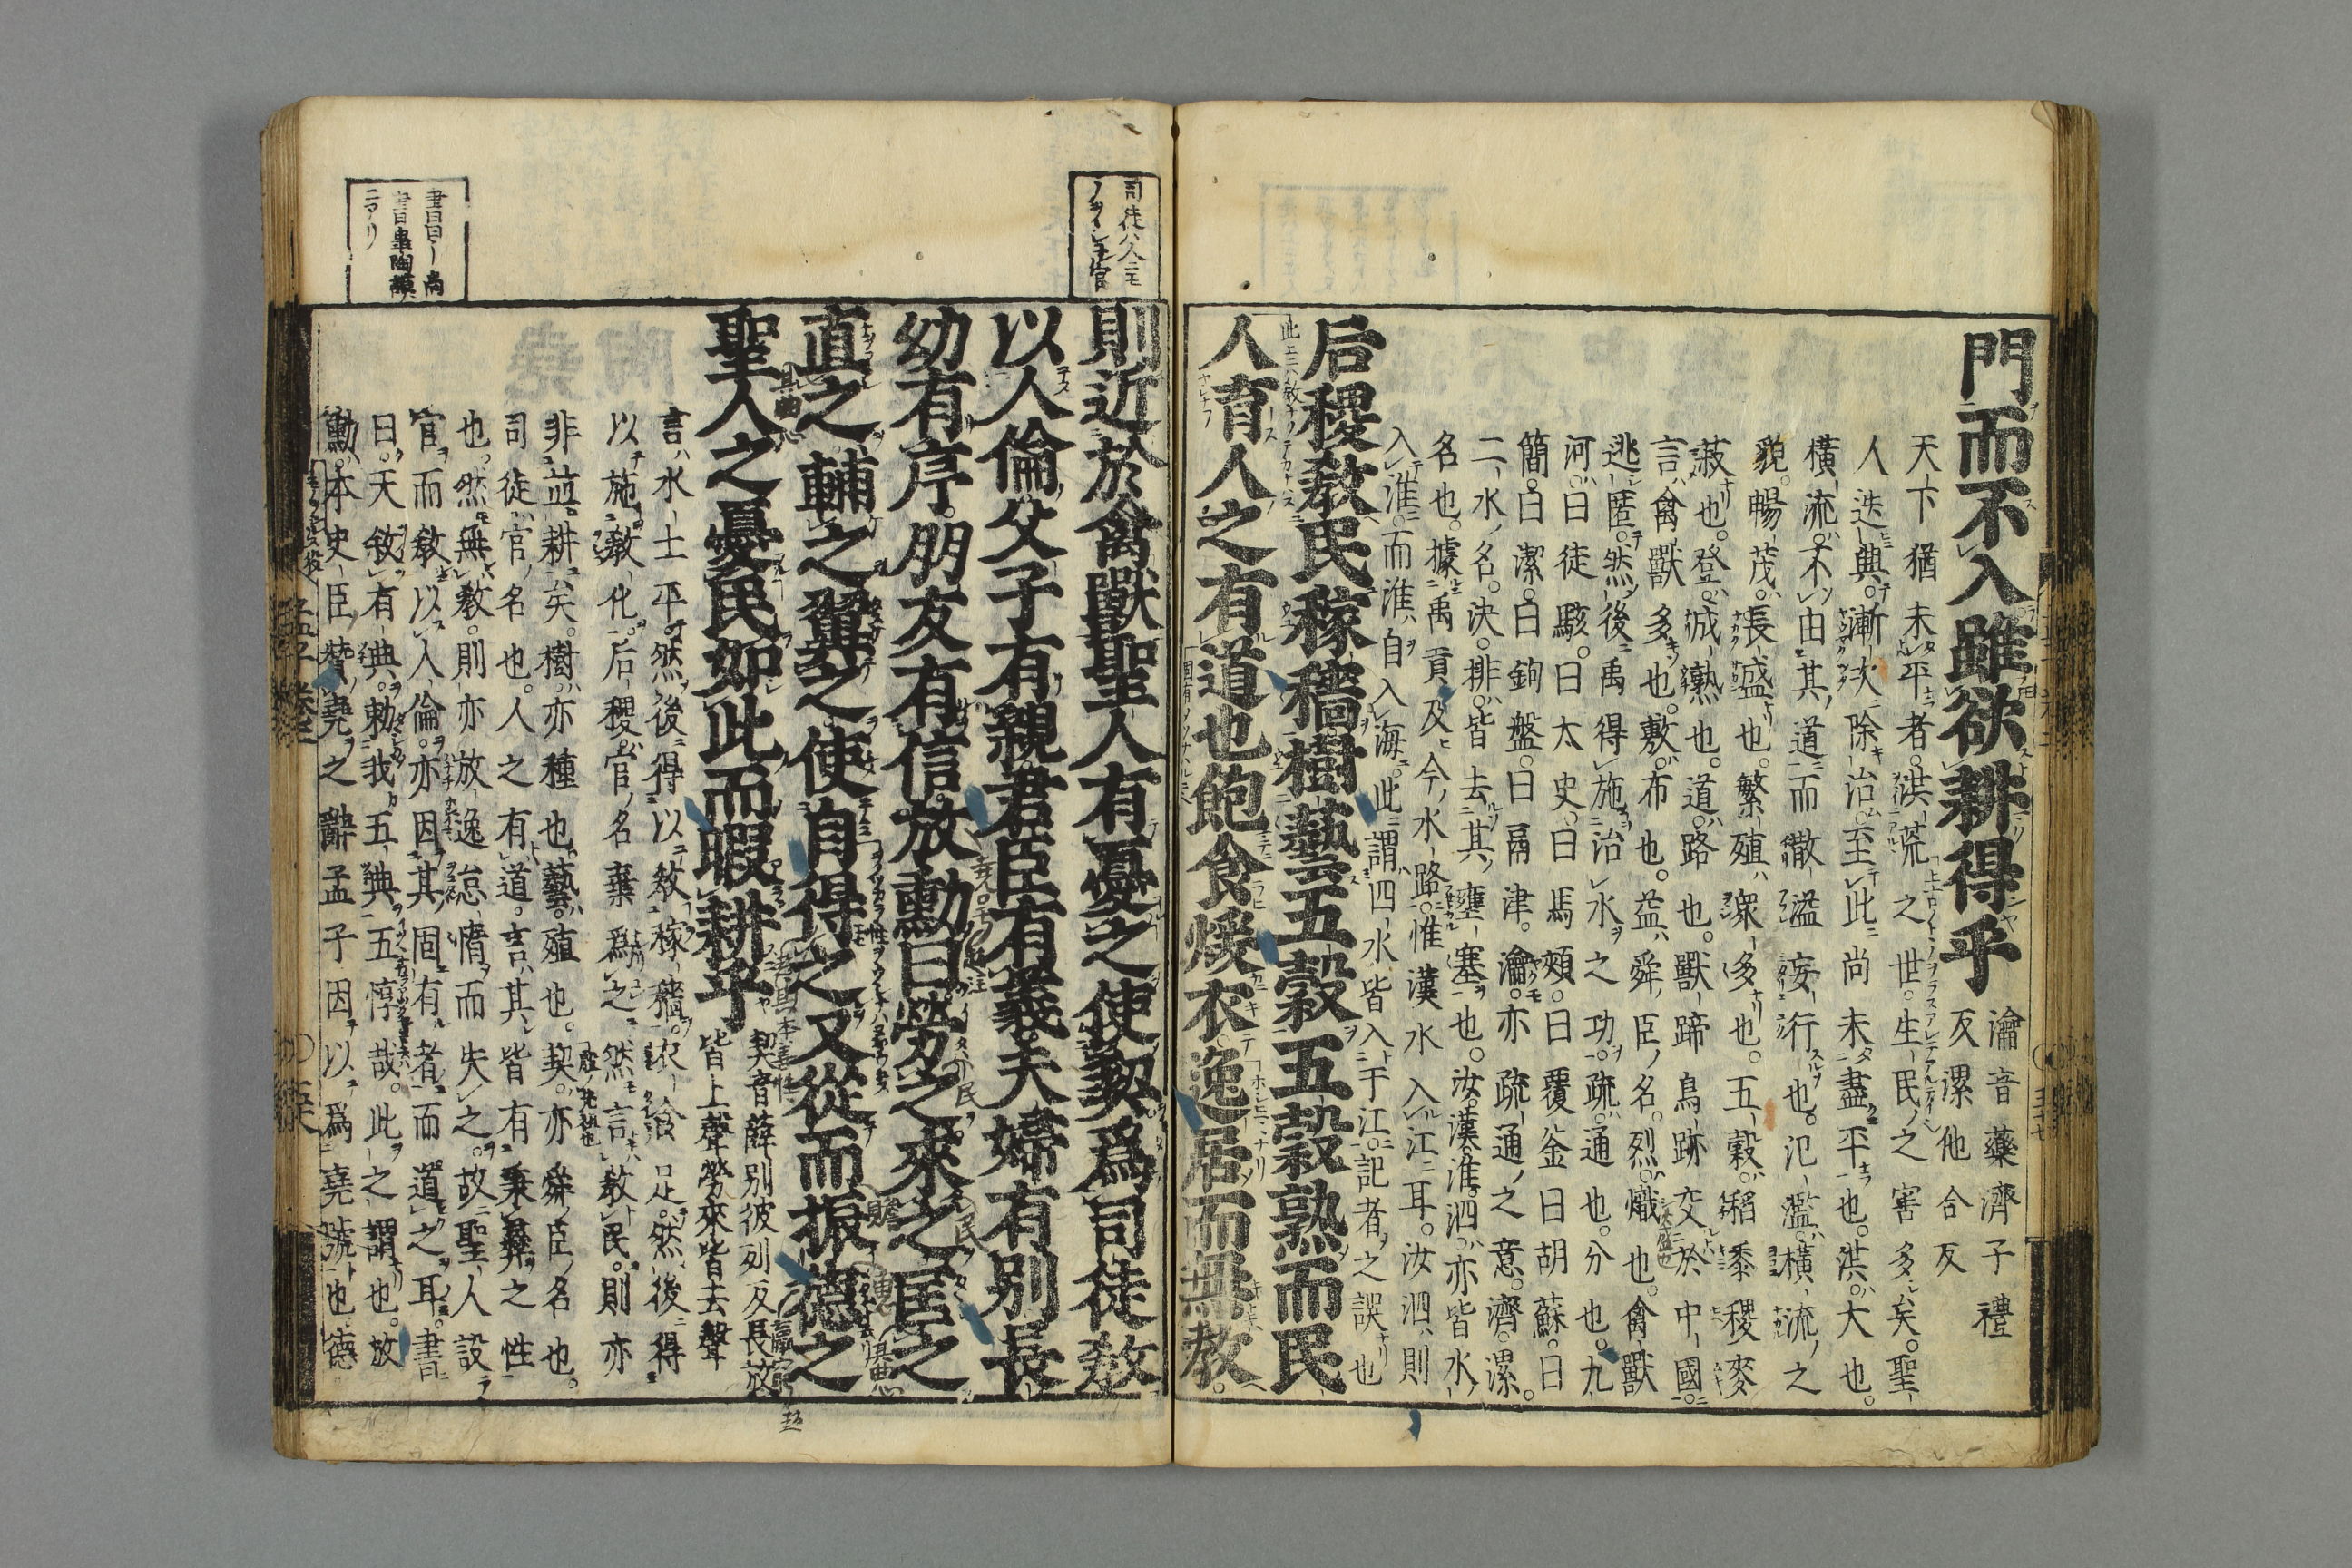 門而不入雖欲耕得乎
瀹音藥濟子禮
反漯他合反
天下猶未平者。洪荒之世。生民之害多矣。聖
人迭興。漸次除治。至此尚未盡平也。洪。大也。
橫流。不由其道而散溢妄行也。氾濫。橫流之
貌。暢茂。長盛也。繁殖。衆多也。五穀。稻黍稷麥
菽也。登。成熟也。道。路也。獸蹄鳥跡交於中國。
言禽獸多也。敷。布也。益。舜臣名。烈。熾也。禽獸
逃匿。然後禹得施治水之功。疏。通也。分也。九
河。曰徒駭。曰太史。曰馬頰。曰覆釜。曰胡蘇。曰
簡。曰潔。曰鉤盤。曰鬲津。瀹。亦疏通之意。濟。漯。
二水名。決。排。皆去其壅塞也。汝。漢。淮。泗。亦皆水
名也。據禹貢及今水路。惟漢水入江耳。汝泗則
入淮。而淮自入海。此謂四水皆入于江。記者之誤也
后稷教民稼穡樹藝五穀五穀熟而民
人育人之有道也飽食煖衣逸居而無教
則近於禽獸聖人有憂之使契爲司徒教
以人倫父子有親君臣有義夫婦有别長
幼有序朋友有信放勳曰勞之來之匡之
直之輔之翼之使自得之又從而振德之
聖人之憂民如此而暇耕乎
契音薛别彼列反長放
皆上聲勞來皆去聲
言水土平。然後得以教稼穡。衣食足。然後得
以施教化。后稷。官名。棄爲之。然言教民。則亦
非並耕矣。樹。亦種也。藝。殖也。契。亦舜臣名也。
司徒。官名也。人之有道。言其皆有秉彝之性
也。然無教。則亦放逸怠惰而失之。故聖人設
官而教以人倫。亦因其固有者而道之耳。書
曰。天敘有典。勑我五典。五惇哉。此之謂也。放
勳。本史臣贊堯之辭。孟子因以爲堯號也。德
司徒ハ人ニモ
書曰ー尚
書皐陶謨
ニアリ